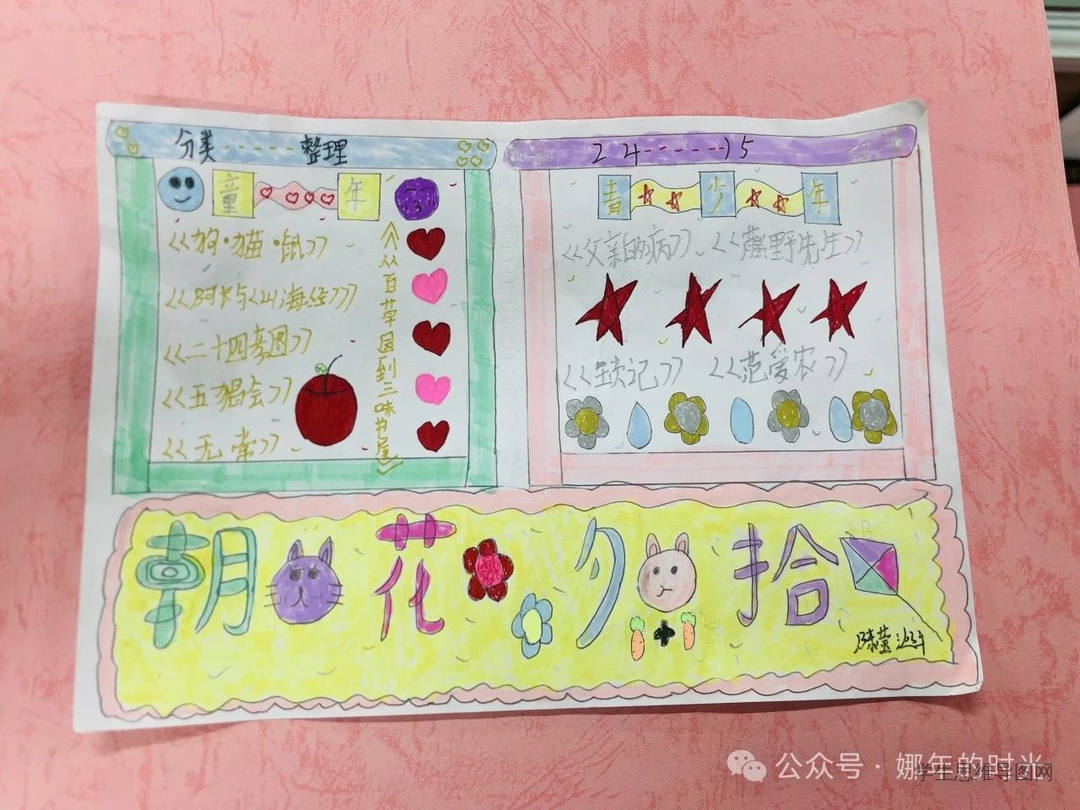 分类------整理
童年
《狗·猫·鼠》
《阿长与《山海经》》
《二十四孝图》
《五猖会》
《无常》
《从百草园到三味书屋》
24------15
青少年
《父亲的病》《藤野先生》
《琐记》《范爱农》
朝花夕拾
公众号·娜年的时光
学生思维导图网